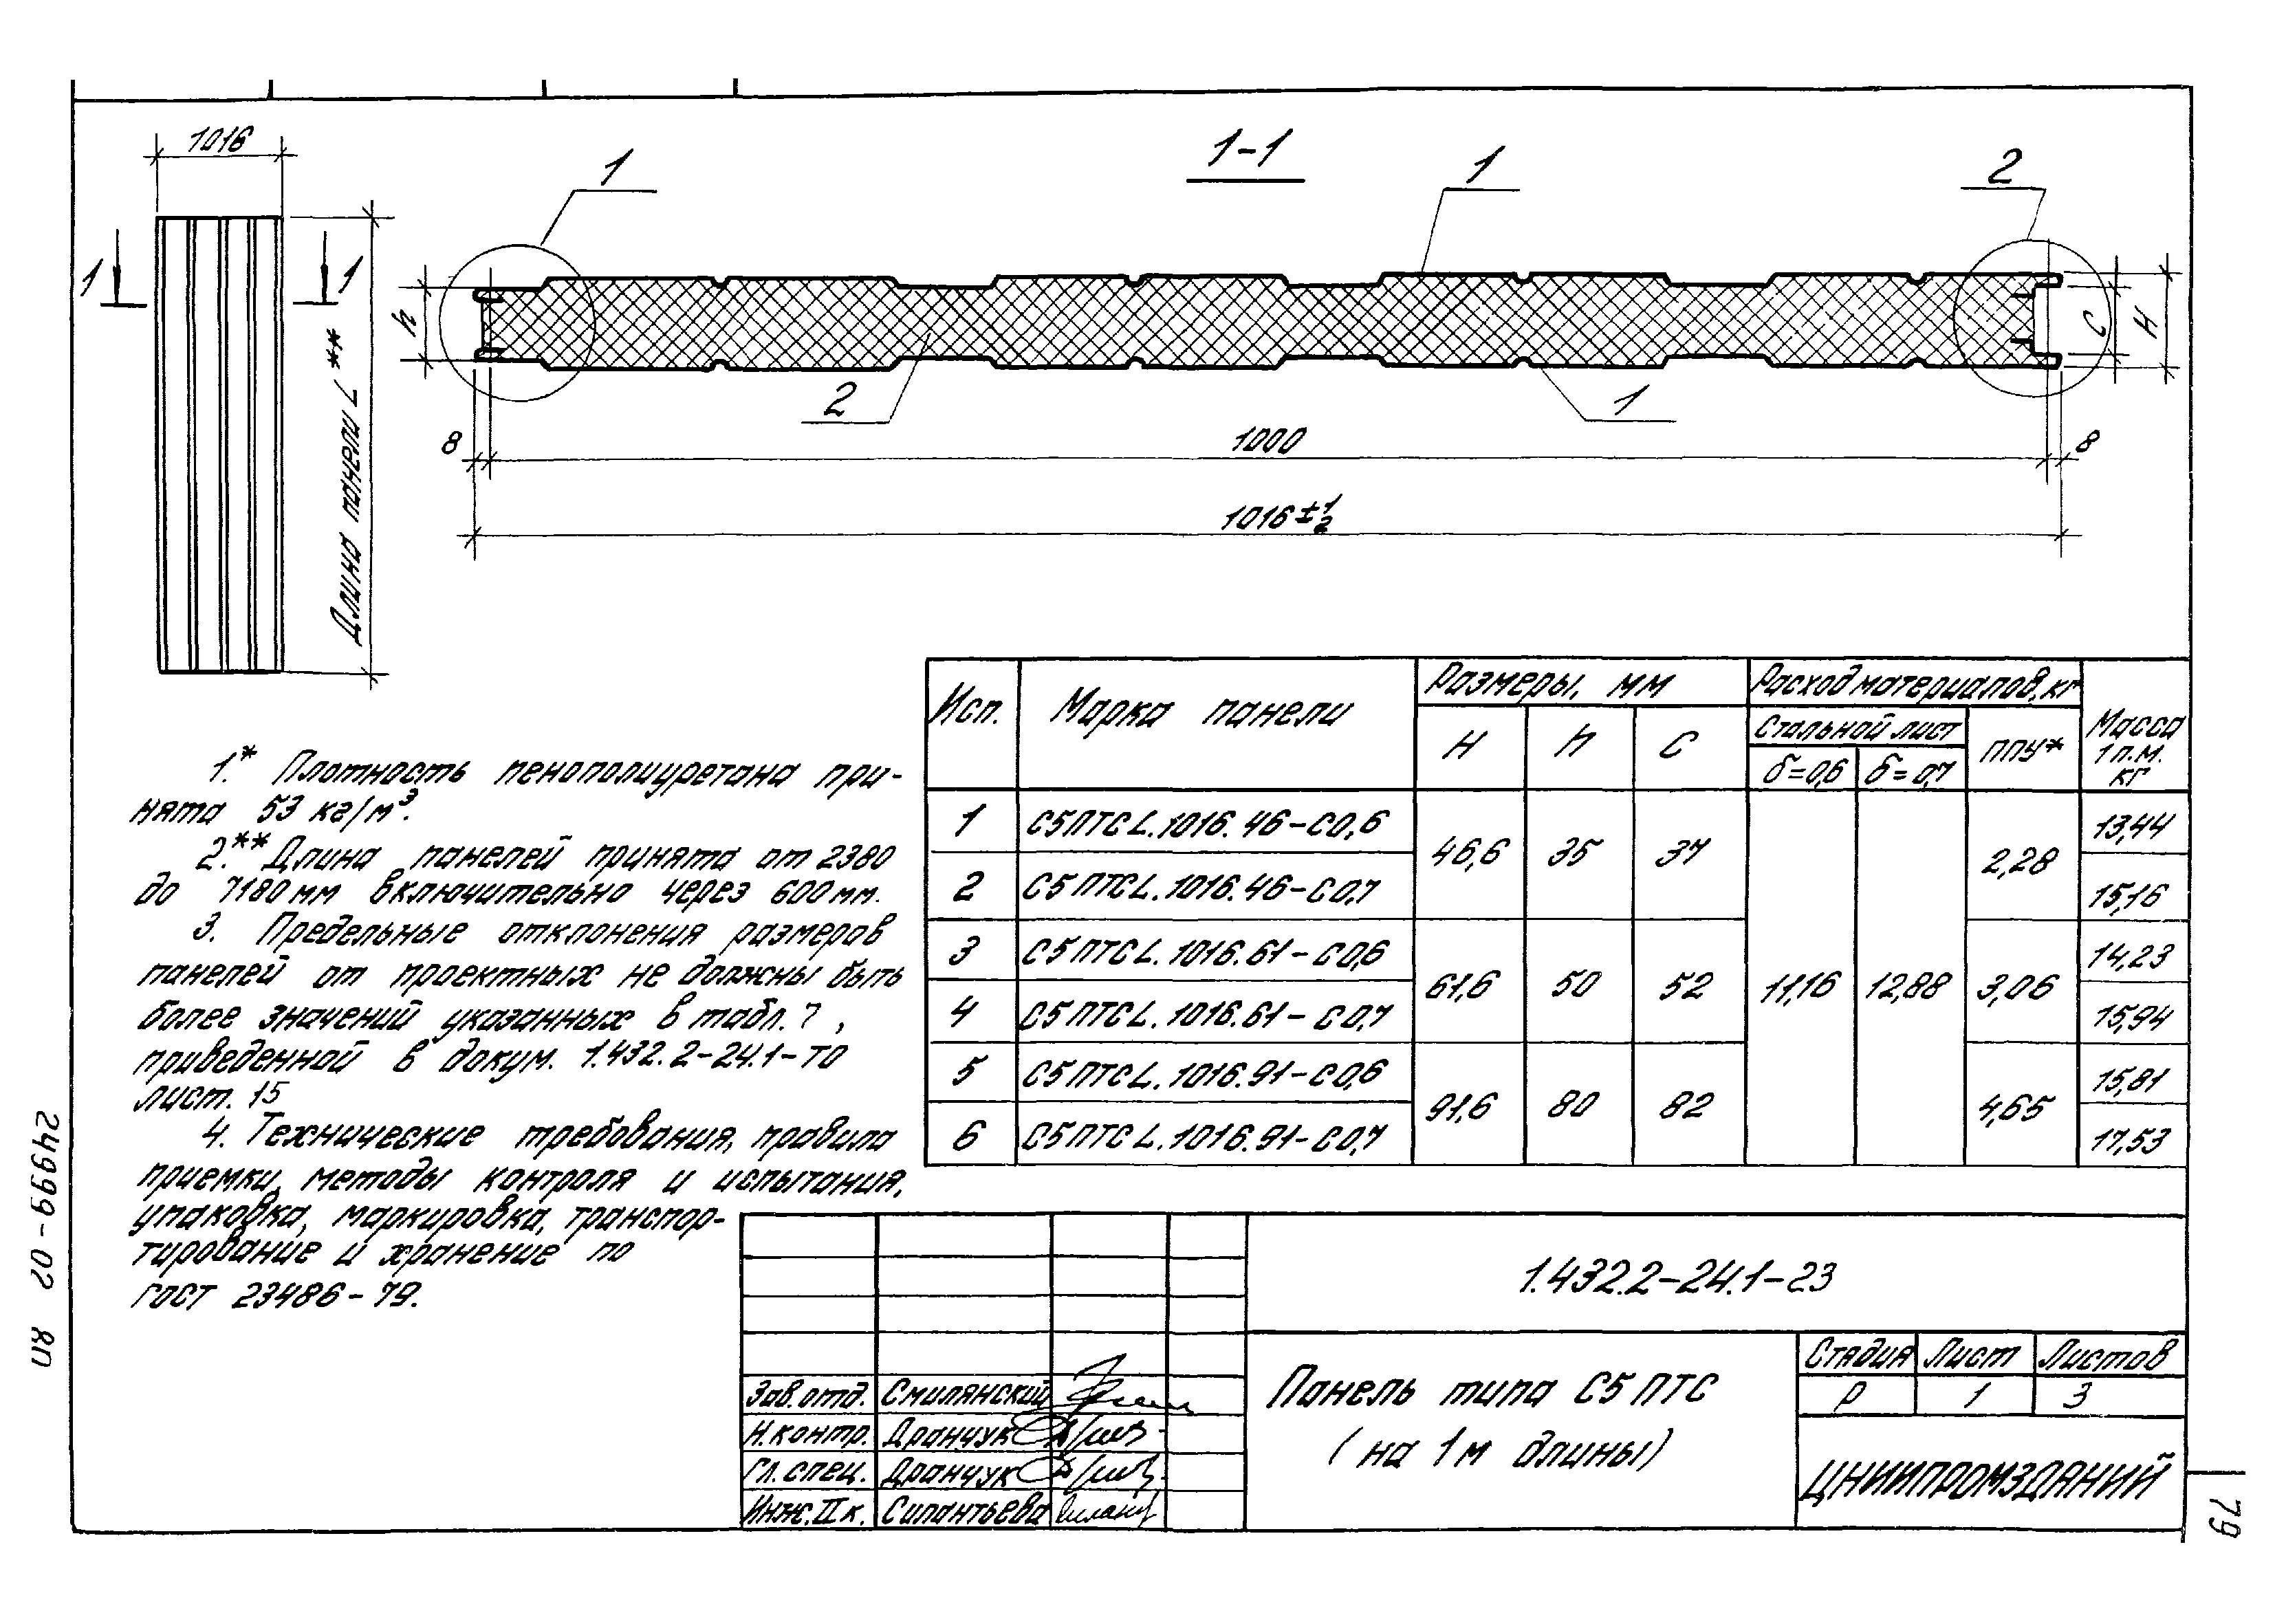 1016
1
1-1
1
2
1
1
h
Длина панели L **
C
H
2
1
8
1000
8
1016 ±1/2
1.* Плотность пенополиуретана при-
нята 53 кг/м³.
2.** Длина панелей принята от 2380
до 7180 мм включительно через 600 мм.
3. Предельные отклонения размеров
панелей от проектных не должны быть
более значений указанных в табл. 7,
приведенной в докум. 1.432.2-24.1-ТО
лист. 15
4. Технические требования, правила
приемки, методы контроля и испытания,
упаковка, маркировка, транспор-
тирование и хранение по
ГОСТ 23486-79.
Исп. Марка панели Размеры, мм Расход материалов, кг Масса 1 п.м. кг
H h C Стальной лист ППУ*
δ=0,6 δ=0,7
1 С5ПТС L.1016.46-С0,6 46,6 35 37 11,16 12,88 2,28 13,44
2 С5ПТС L.1016.46-С0,7 15,16
3 С5ПТС L.1016.61-С0,6 61,6 50 52 3,06 14,23
4 С5ПТС L.1016.61-С0,7 15,94
5 С5ПТС L.1016.91-С0,6 91,6 80 82 4,65 15,81
6 С5ПТС L.1016.91-С0,7 17,53
1.432.2-24.1-23
Зав.отд. Смилянский
Н.контр. Дранчук
Гл.спец. Дранчук
Инж.II к. Силантьева
Панель типа С5ПТС
(на 1м длины)
Стадия Лист Листов
Р 1 3
ЦНИИПРОМЗДАНИЙ
24999-02 80
79